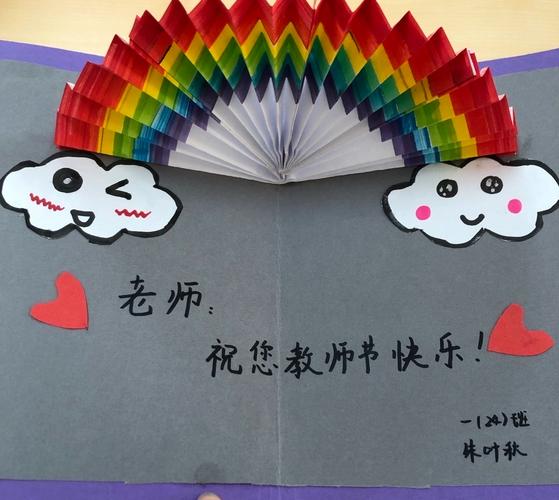 老师：
祝您教师节快乐！
一（24）班
朱叶秋